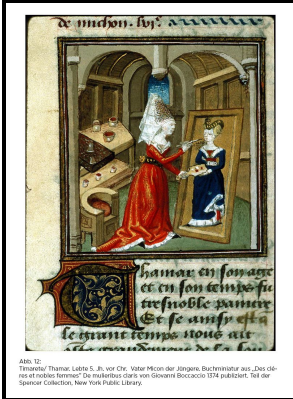 de michon. lvi.
Thamar en son aage
et en son temps fu
tresnoble paintre
Et se ainsy est q̃
le grant temps nous ait
Abb. 12:
Timarete/ Thamar. Lebte 5. Jh. vor Chr. Vater Micon der Jüngere. Buchminiatur aus „Des clé-
res et nobles femmes" De mulieribus claris von Giovanni Boccaccio 1374 publiziert. Teil der
Spencer Collection, New York Public Library.